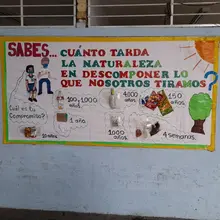 SABES... CUÁNTO TARDA
LA NATURALEZA
EN DESCOMPONER LO
QUE NOSOTROS TIRAMOS?
100,1000
años
4000
años
150
años.
Cuál es tu
Compromiso?
1 año.
10 años
1000
años
4 semanas.